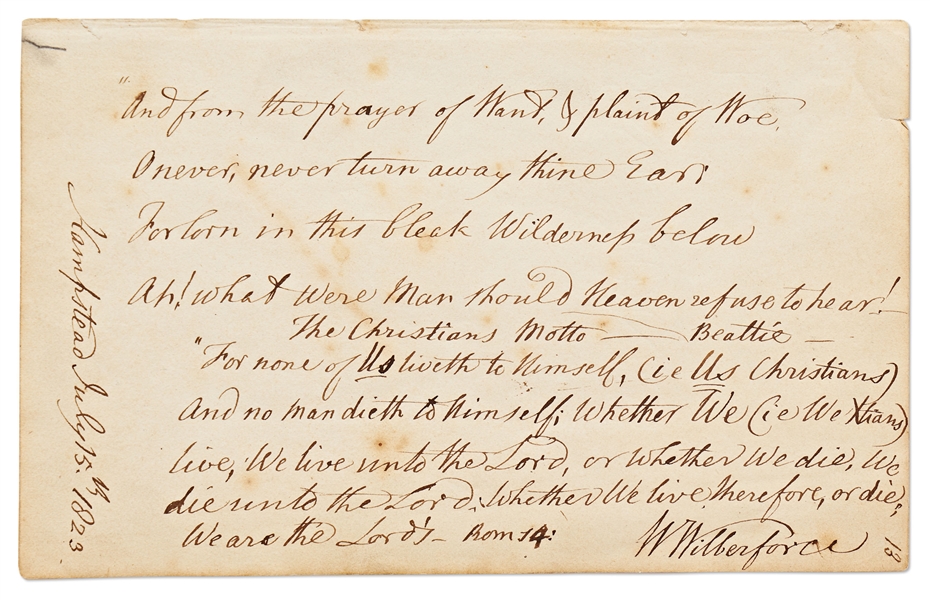 "And from the prayer of Want, & plaint of Woe,
O never, never turn away thine Ear;
Forlorn in this bleak Wilderness below
Ah! what were Man should Heaven refuse to hear!
The Christians Motto — Beattie —
"For none of Us liveth to Himself, (ie Us Christians)
And no man dieth to Himself; Whether We (ie We Xtians)
live, We live unto the Lord, or Whether We die, We
die unto the Lord, Whether We live therefore, or die,
We are the Lord's — Rom 14:
W Wilberforce
13
Hampstead July 15.th 1823